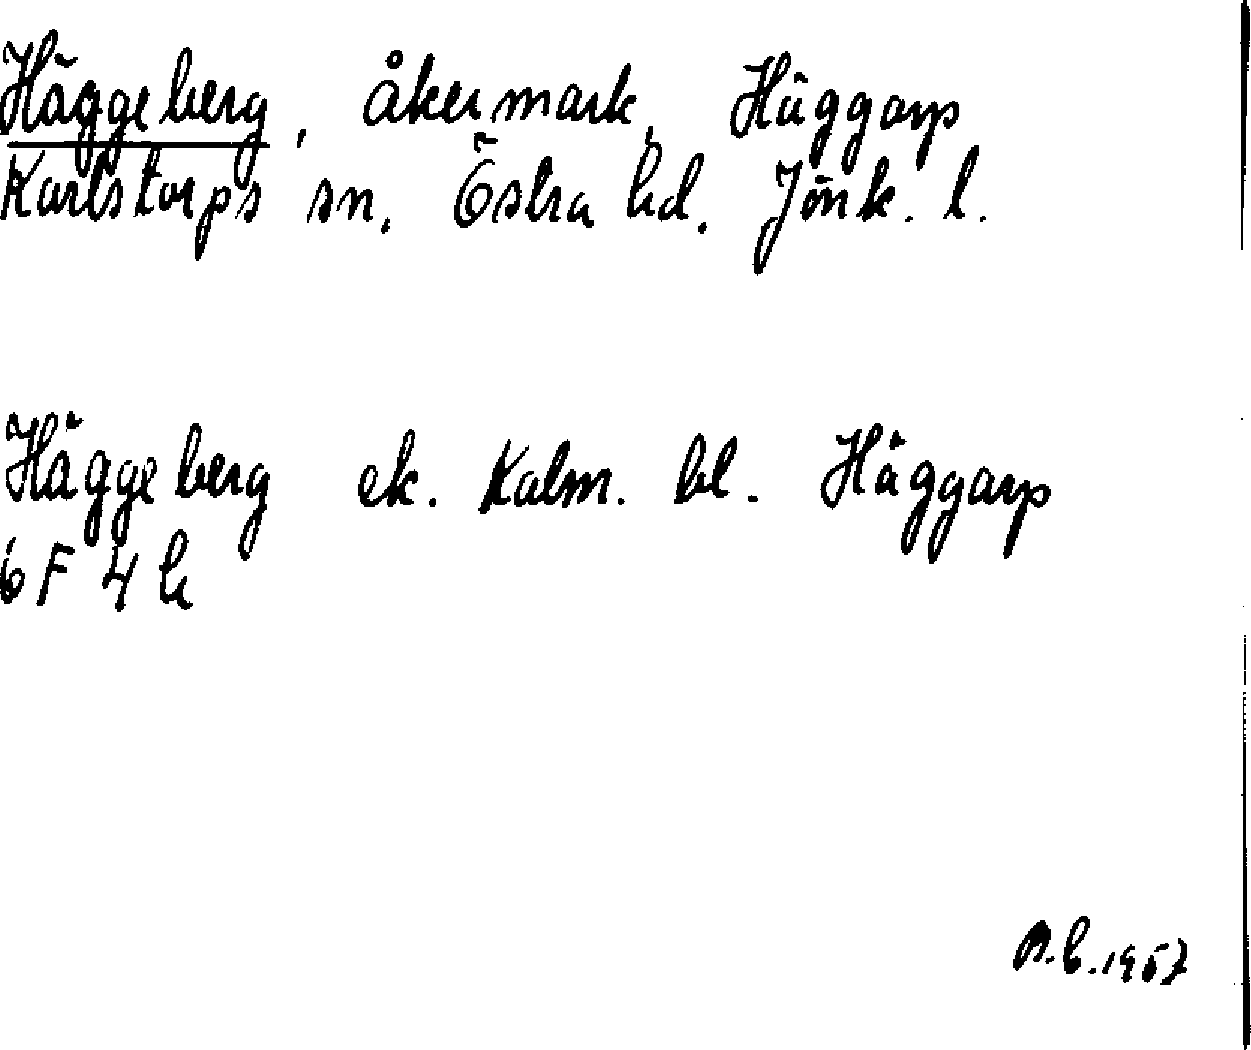 Häggeberg, åkermark, Häggarp
Karlstorps sn. Östra hd. Jönk. l.
Häggeberg ek. Kalm. bl. Häggarp
6 F 4 h
1957